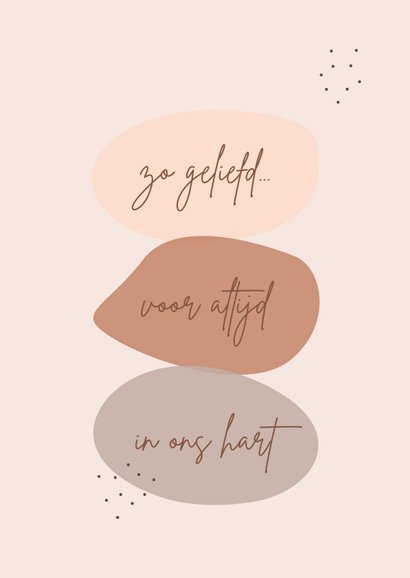 zo geliefd...
voor altijd
in ons hart